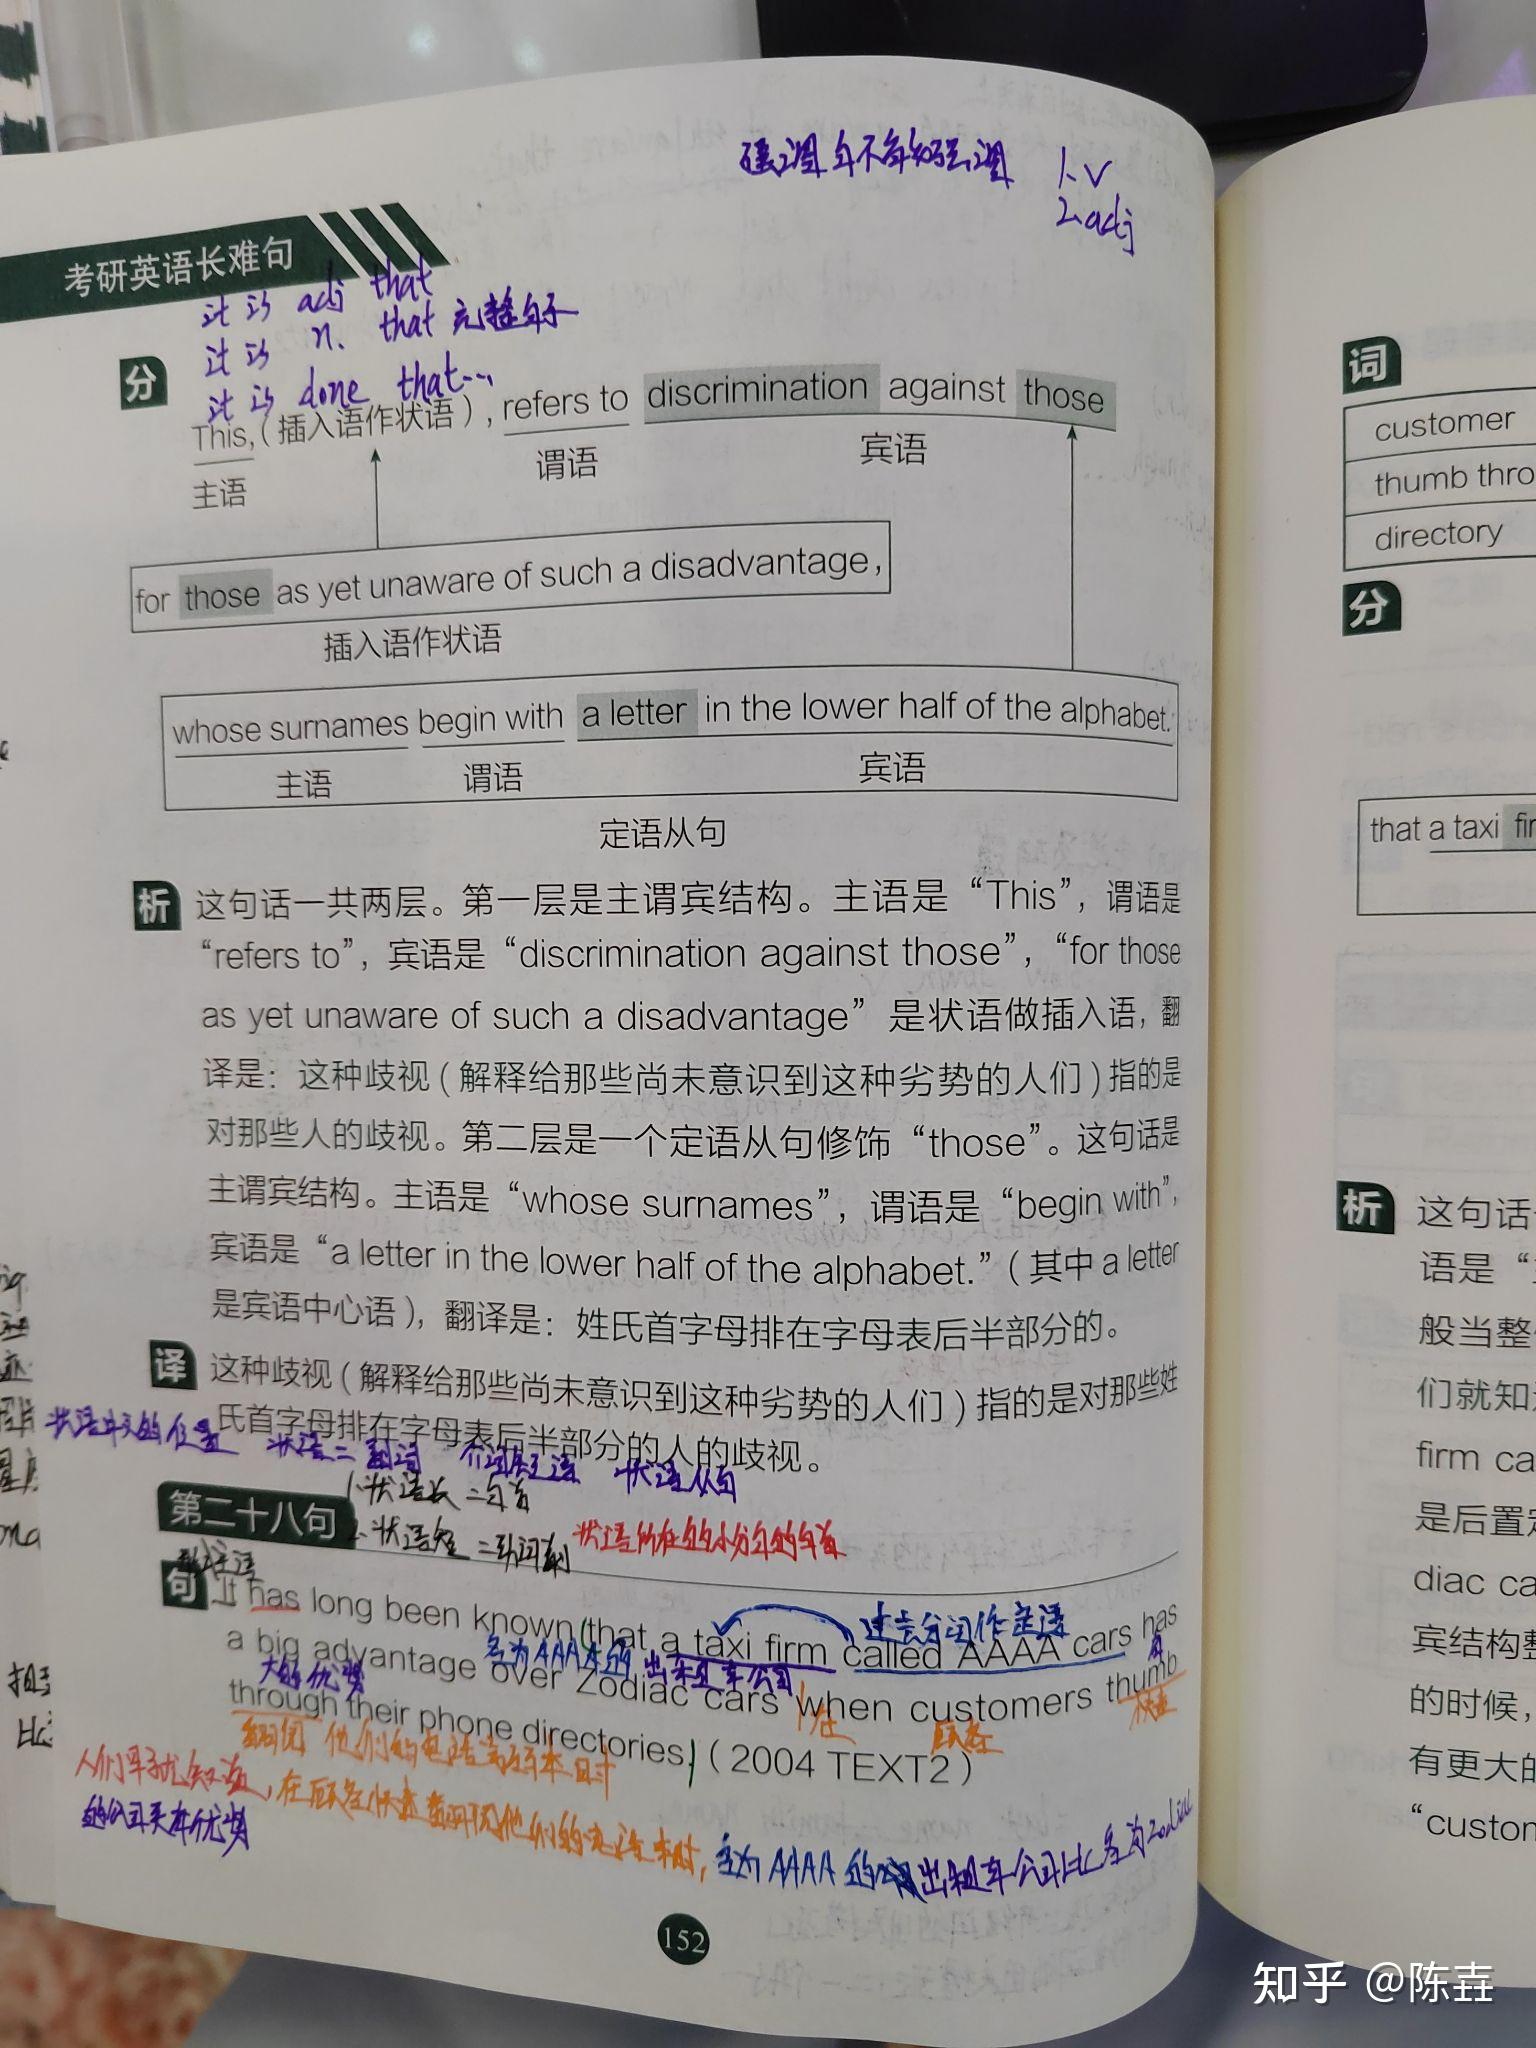 强调句不能强调 1. v
2. adj
考研英语长难句
it is adj that
it is n. that 完整句子
it is done that...
分
This,(插入语作状语), refers to discrimination against those
主语 谓语 宾语
for those as yet unaware of such a disadvantage,
插入语作状语
whose surnames begin with a letter in the lower half of the alphabet.
主语 谓语 宾语
定语从句
析 这句话一共两层。第一层是主谓宾结构。主语是“This”,谓语是
“refers to”,宾语是“discrimination against those”,“for those
as yet unaware of such a disadvantage”是状语做插入语,翻
译是:这种歧视(解释给那些尚未意识到这种劣势的人们)指的是
对那些人的歧视。第二层是一个定语从句修饰“those”。这句话是
主谓宾结构。主语是“whose surnames”,谓语是“begin with”,
宾语是“a letter in the lower half of the alphabet.”(其中 a letter
是宾语中心语),翻译是:姓氏首字母排在字母表后半部分的。
译 这种歧视(解释给那些尚未意识到这种劣势的人们)指的是对那些姓
氏首字母排在字母表后半部分的人的歧视。
状语中文的位置 状语= 副词 介词短语 状语从句
1. 状语长=句首
第二十八句
2. 状语短=动词前 状语所在的小分句的句首
句 It has long been known that a taxi firm called AAAA cars has
过去分词作定语
a big advantage over Zodiac cars when customers thumb
大的优势 名为AAAA的 出租车公司
through their phone directories. (2004 TEXT2)
翻阅 他们的电话 时 在 顾客 快速
人们早就知道,在顾客快速翻阅他们的电话本时,名为AAAA的出租车公司比名为Zodiac
的公司更有优势
152
词
customer
thumb thro
directory
分
that a taxi fir
析 这句话
语是“
般当整
们就知
firm ca
是后置定
diac ca
宾结构整
的时候,
有更大的
“custon
知乎 @陈壵